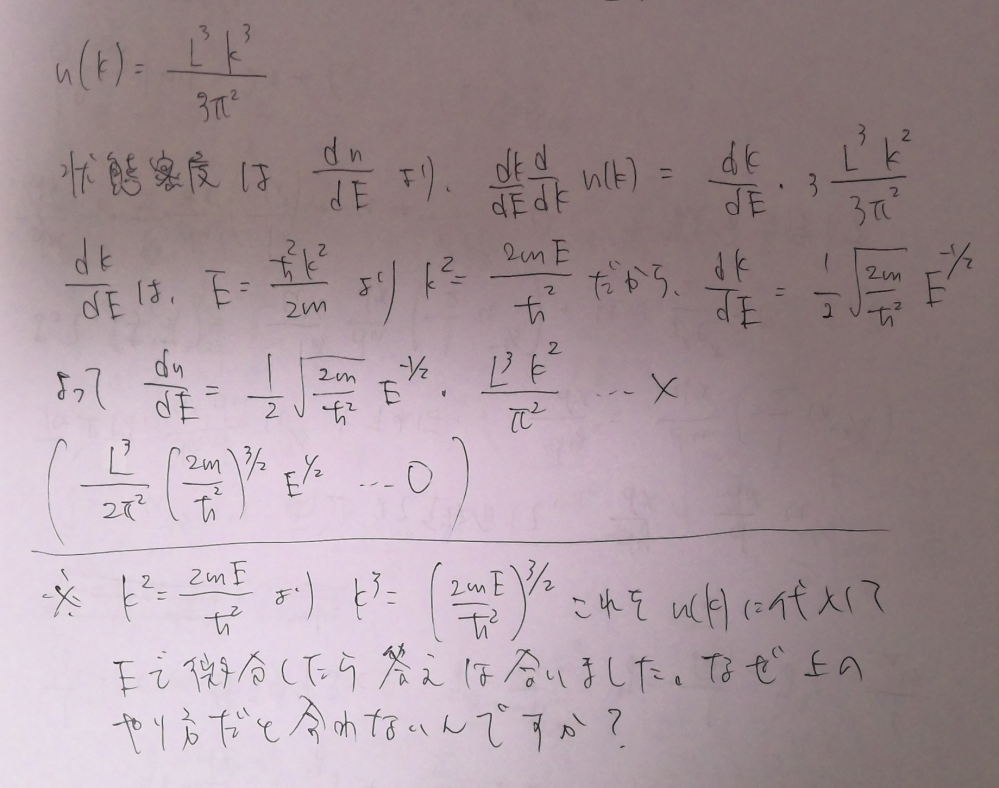 n(k) = L³k³ / 3π²
状態密度は dn/dE より、 dk/dE d/dk n(k) = dk/dE · 3 L³k² / 3π²
dk/dE は、 E = ħ²k² / 2m より k² = 2mE / ħ² だから、 dk/dE = 1/2 √(2m/ħ²) E^(-1/2)
よって dn/dE = 1/2 √(2m/ħ²) E^(-1/2) · L³k² / π² … ×
( L³ / 2π² (2m/ħ²)^(3/2) E^(1/2) … ○ )
※ k² = 2mE / ħ² より k³ = (2mE/ħ²)^(3/2) これを n(k) に代入して
Eで微分したら答えは合いました。なぜ上の
やり方だと合わないんですか?